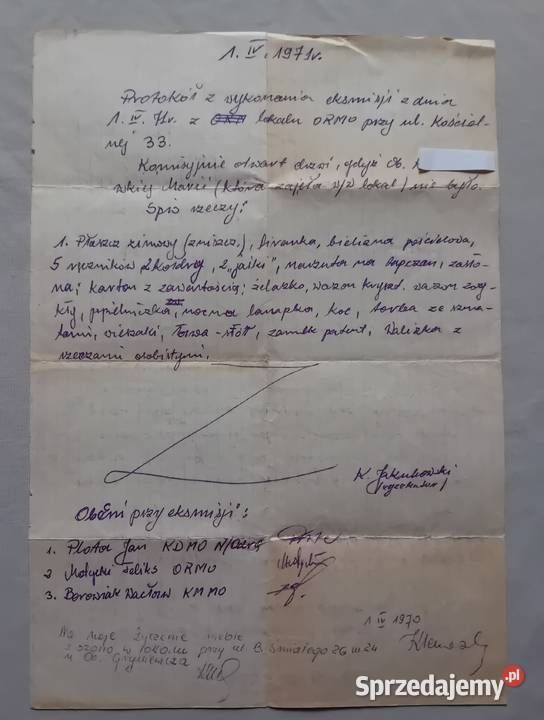 1. IV. 1971r.
Protokół z wykonania eksmisji z dnia
1. IV. 71r. z lokalu ORMO przy ul. Kościel-
nej 33.
Komisyjnie otwart drzwi, gdyż Ob.
skiej Marii (która zajęła w/w lokal) nie było.
Spis rzeczy:
1. Płaszcz zimowy (zniszcz.), firanka, bielizna pościelowa,
5 ręczników, 2 kołdry, 2 "jaśki", narzuta na tapczan, zasło-
na; karton z zawartością: żelazko, wazon kryszt. wazon zwy-
kły, popielniczka, nocna lampka, koc, torba ze szma-
tami, wieszaki, ława-stół, zamek patent, walizka z
rzeczami osobistymi.
K. Jakubowski
Obecni przy eksmisji:
1. Plota Jan KDMO
2 Matycki Feliks ORMO
3. Borowiak Wacław KMMO
1 IV 1970
Na moje życzenie meble
w lokalu przy ul. B. Śmiałego 26 m 24
u Ob.
Sprzedajemy.pl